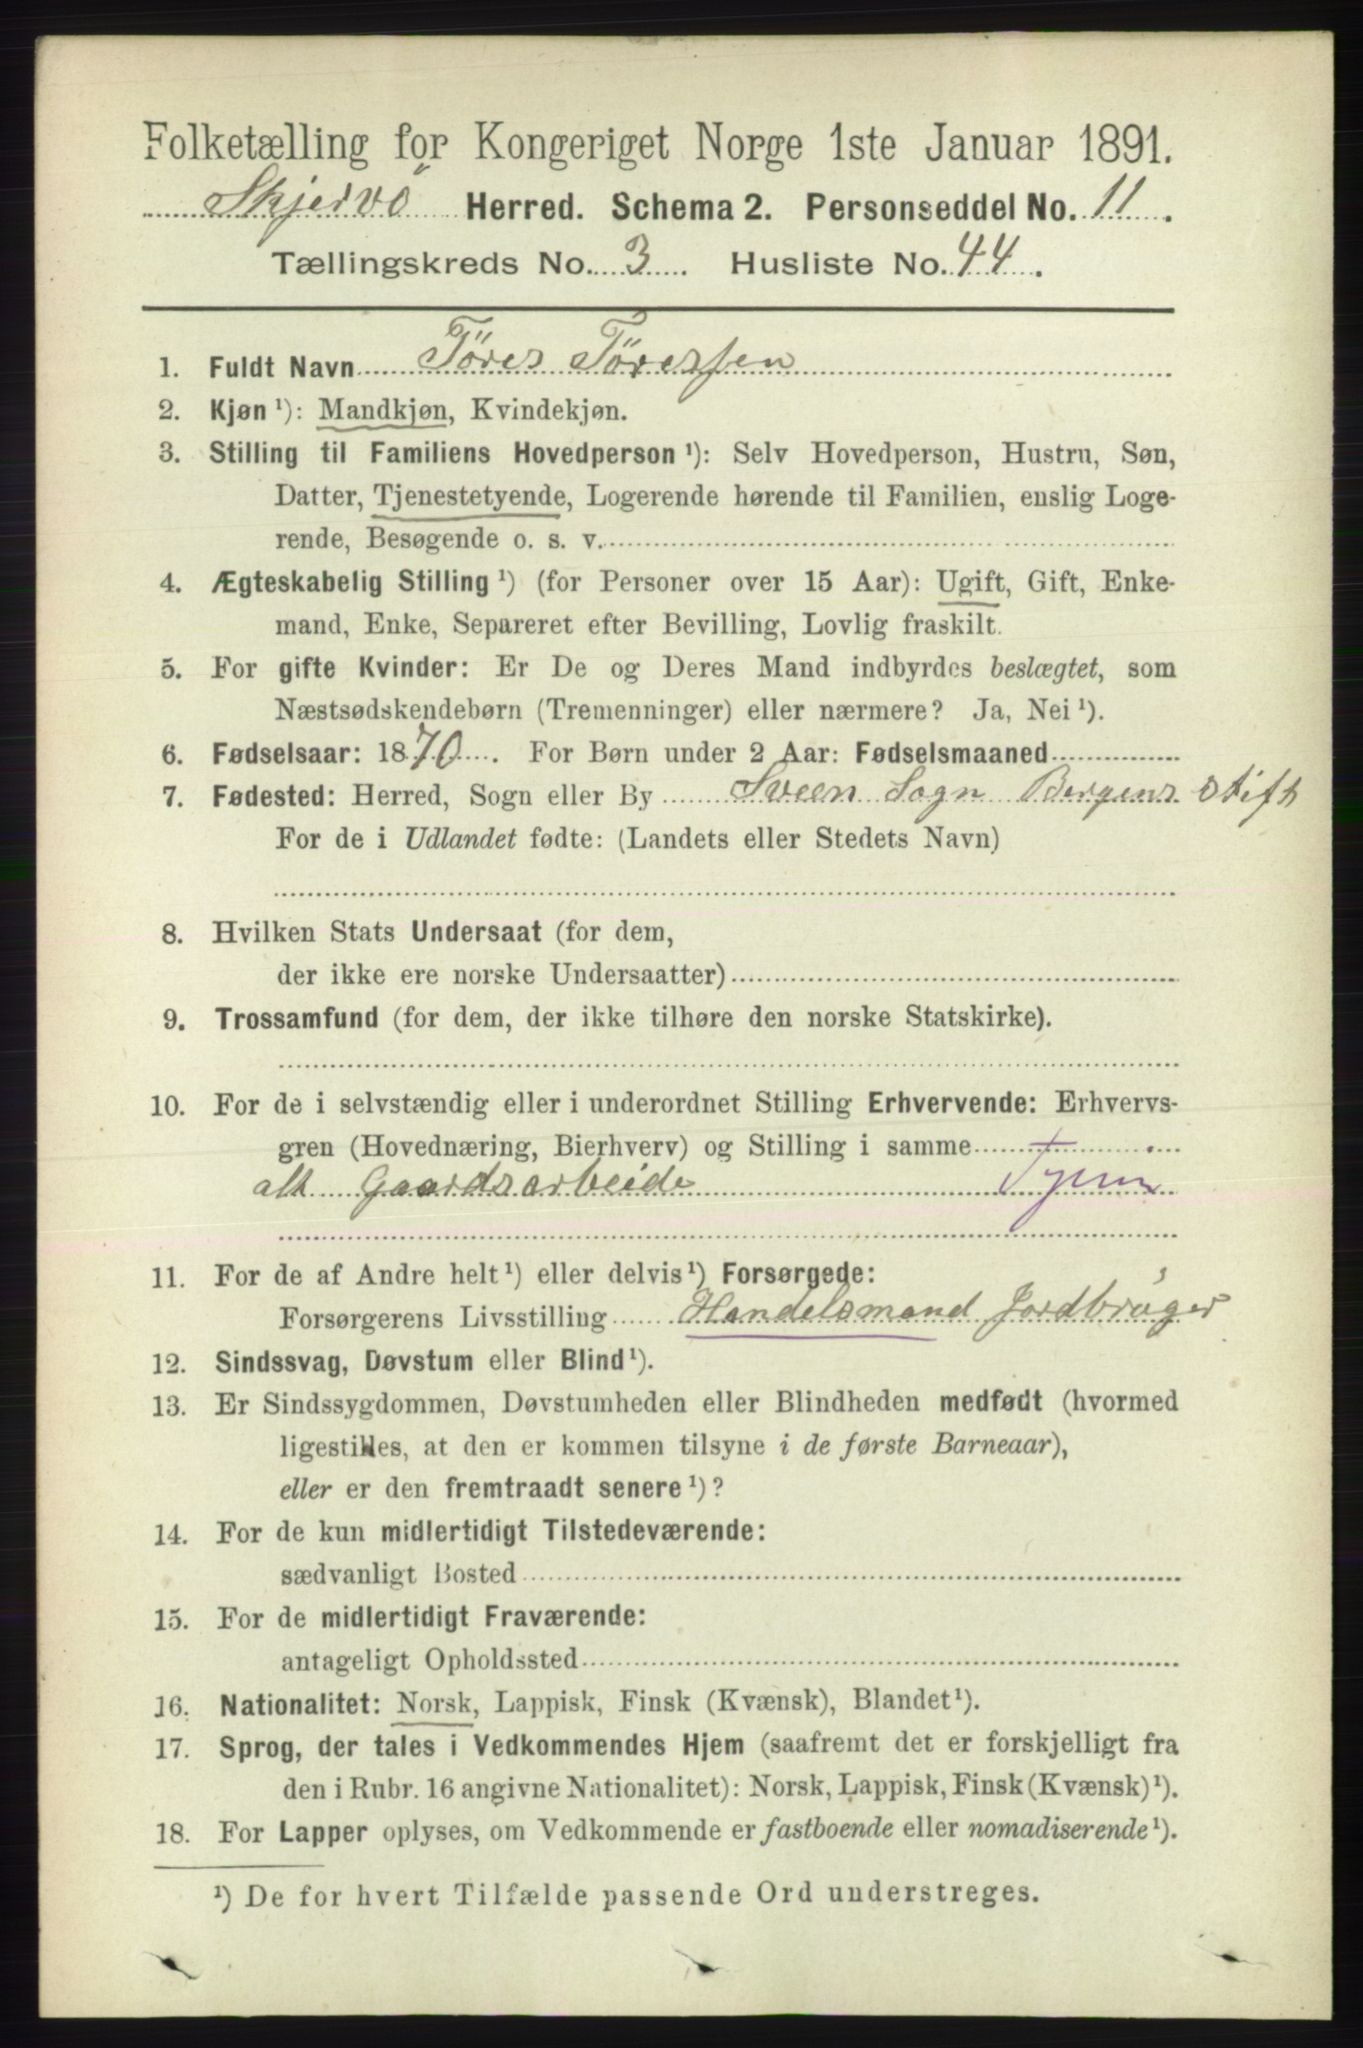 Folketælling for Kongeriget Norge 1ste Januar 1891.
Skjervö Herred. Schema 2. Personseddel No. 11.
Tællingskreds No. 3. Husliste No. 44.
1. Fuldt Navn Töres Töressen
2. Kjøn ¹): Mandkjøn, Kvindekjøn.
3. Stilling til Familiens Hovedperson ¹): Selv Hovedperson, Hustru, Søn,
Datter, Tjenestetyende, Logerende hørende til Familien, enslig Loge-
rende, Besøgende o. s. v.
4. Ægteskabelig Stilling ¹) (for Personer over 15 Aar): Ugift, Gift, Enke-
mand, Enke, Separeret efter Bevilling, Lovlig fraskilt.
5. For gifte Kvinder: Er De og Deres Mand indbyrdes beslægtet, som
Næstsødskendebørn (Tremenninger) eller nærmere? Ja, Nei ¹).
6. Fødselsaar: 1870. For Børn under 2 Aar: Fødselsmaaned
7. Fødested: Herred, Sogn eller By Sveen Sogn Bergens Stift
For de i Udlandet fødte: (Landets eller Stedets Navn)
8. Hvilken Stats Undersaat (for dem,
der ikke ere norske Undersaatter)
9. Trossamfund (for dem, der ikke tilhøre den norske Statskirke).
10. For de i selvstændig eller i underordnet Stilling Erhvervende: Erhvervs-
gren (Hovednæring, Bierhverv) og Stilling i samme
alt Gaardsarbeide
11. For de af Andre helt ¹) eller delvis ¹) Forsørgede:
Forsørgerens Livsstilling Handelsmand Jordbrúger
12. Sindssvag, Døvstum eller Blind ¹).
13. Er Sindssygdommen, Døvstumheden eller Blindheden medfødt (hvormed
ligestilles, at den er kommen tilsyne i de første Barneaar),
eller er den fremtraadt senere ¹)?
14. For de kun midlertidigt Tilstedeværende:
sædvanligt Bosted
15. For de midlertidigt Fraværende:
antageligt Opholdssted
16. Nationalitet: Norsk, Lappisk, Finsk (Kvænsk), Blandet ¹).
17. Sprog, der tales i Vedkommendes Hjem (saafremt det er forskjelligt fra
den i Rubr. 16 angivne Nationalitet): Norsk, Lappisk, Finsk (Kvænsk) ¹).
18. For Lapper oplyses, om Vedkommende er fastboende eller nomadiserende ¹).
¹) De for hvert Tilfælde passende Ord understreges.